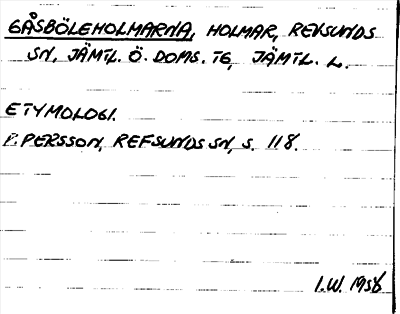 GÅSBÖLEHOLMARNA, HOLMAR, REVSUNDS
SN, JÄMTL. Ö. DOMS. TG, JÄMTL. L.
ETYMOLOGI.
P. PERSSON, REFSUNDS SN, S. 118.
I.W. 1958